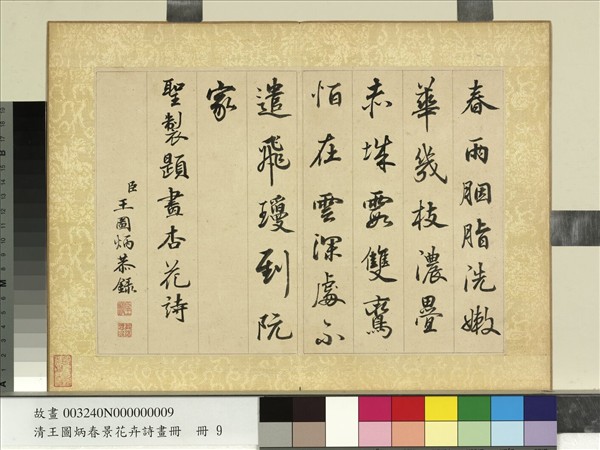 春雨胭脂洗嫩
華幾枝濃疊
赤城霞雙鸞
怕在雲深處不
遣飛瓊到阮
家
聖製題畫杏花詩
臣王圖炳恭錄
故畫 003240N000000009
清王圖炳春景花卉詩畫冊 冊 9